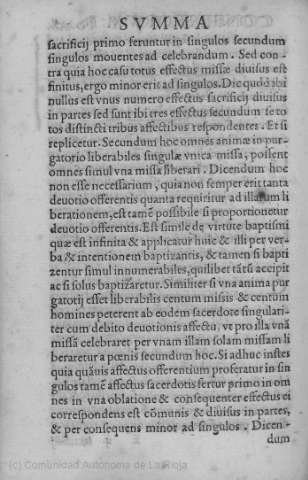 SVMMA
sacrificij primo feruntur in singulos secundum
singulos mouentes ad celebrandum. Sed con-
tra quia hoc casu totus effectus missæ diuisus est
finitus, ergo minor erit ad singulos. Dic quod ibi
nullus est vnus numero effectus sacrificij diuisus
in partes sed sunt ibi tres effectus secundum se to
tos distincti tribus affectibus respondentes. Et si
replicetur. Secundum hoc omnes animæ in pur-
gatorio liberabiles singulæ vnica missa, possent
omnes simul vna missa liberari. Dicendum hoc
non esse necessarium, quia non semper erit tanta
deuotio offerentis quanta requiritur ad illarum li
berationem, est tamē possibile si proportionetur
deuotio offerentis. Est simile de virtute baptismi
quæ est infinita & applicatur huic & illi per ver-
ba & intentionem baptizantis, & tamen si bapti
zentur simul innumerabiles, quilibet tātū accipit
ac si solus baptizaretur. Similiter si vna anima pur
gatorij esset liberabilis centum missis & centum
homines peterent ab eodem sacerdote singulari-
ter cum debito deuotionis affectu, vt pro illa vnā
missā celebraret per vnam illam solam missam li
beraretur a pœnis secundum hoc. Si adhuc instes
quia quāuis affectus offerentium proferatur in sin
gulos tamē affectus sacerdotis fertur primo in om
nes in vna oblatione & consequenter effectus ei
correspondens est cōmunis & diuisus in partes,
& per consequens minor ad singulos. Dicen-
dum
(c) Comunidad Autónoma de La Rioja